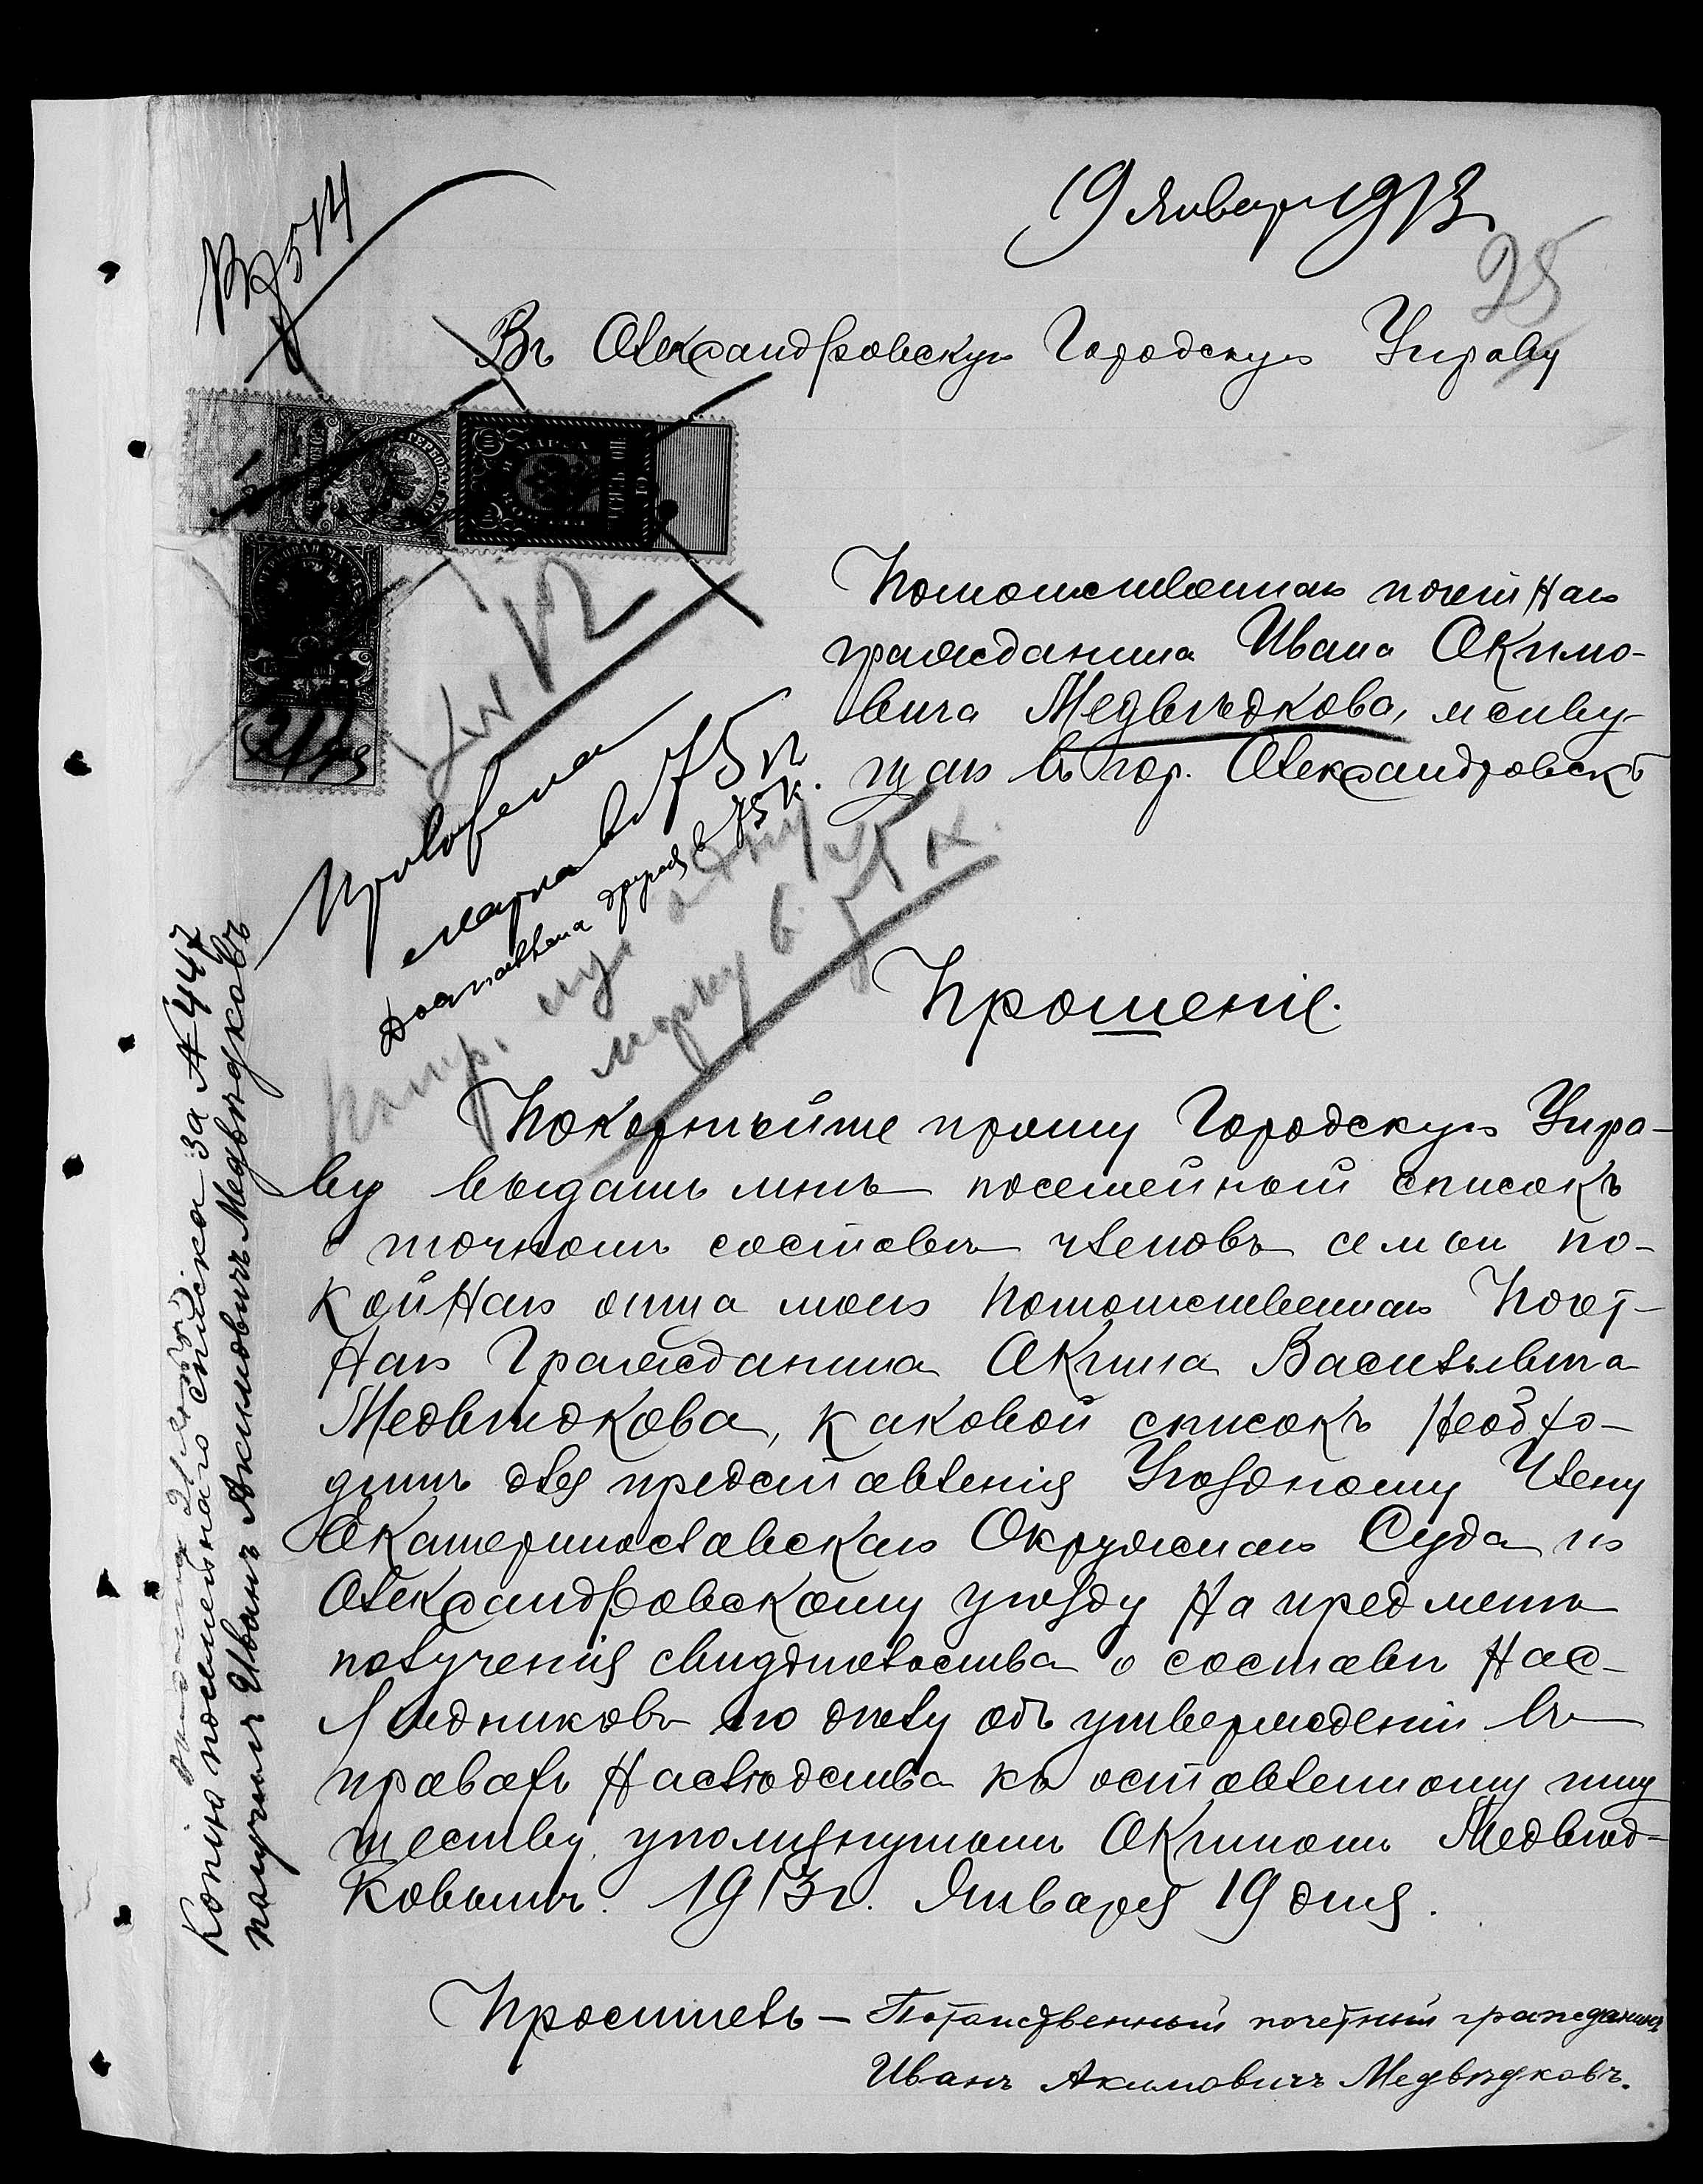 19 Январ 1913
25
Вх 514
Въ Александровскую Городскую Управу
Потомственнаго почетнаго
гражданина Ивана Акимо-
вича Медвѣдкова, живу-
щаго въ гор. Александровскѣ
75 к
марка въ
Доставлена другая в 75 к.
марку в 75 к.
Прошеніе.
Покорнѣйше прошу Городскую Упра-
ву выдать мнѣ посемейный списокъ
о точномъ составѣ членовъ семьи по-
койнаго отца моего Потомственнаго Почет-
наго Гражданина Акима Васильевича
Медвѣдкова, каковой списокъ необхо-
димъ для представленія Уѣздному Члену
Екатеринославскаго Окружнаго Суда по
Александровскому уѣзду на предметъ
полученія свидѣтельства о составѣ нас-
лѣдниковъ по дѣлу объ утвержденіи въ
правахъ наслѣдства къ оставленному иму
ществу упомянутымъ Акимомъ Медвѣд-
ковымъ. 1913 г. Января 19 дня.
Проситель – Потомственный почетный гражданинъ
Иванъ Акимовичъ Медвѣдковъ.
Копію посемейнаго списка за № 447
получилъ Иванъ Акимовичъ Медвѣдковъ